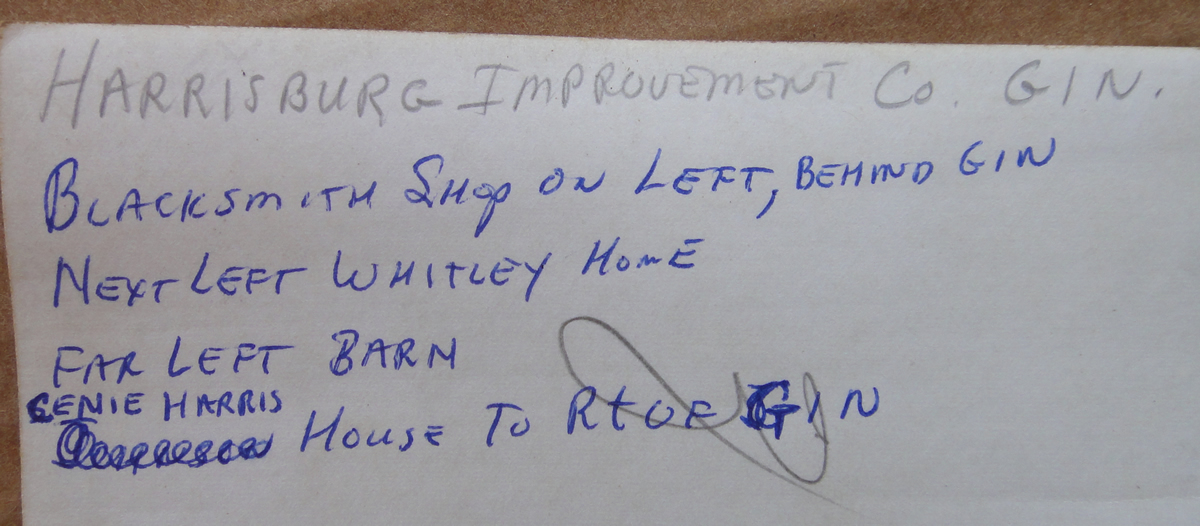 HARRISBURG IMPROVEMENT Co. GIN.
BLACKSMITH SHOP ON LEFT, BEHIND GIN
NEXT LEFT WHITLEY HOME
FAR LEFT BARN
GENIE HARRIS
HOUSE TO Rt OF GIN